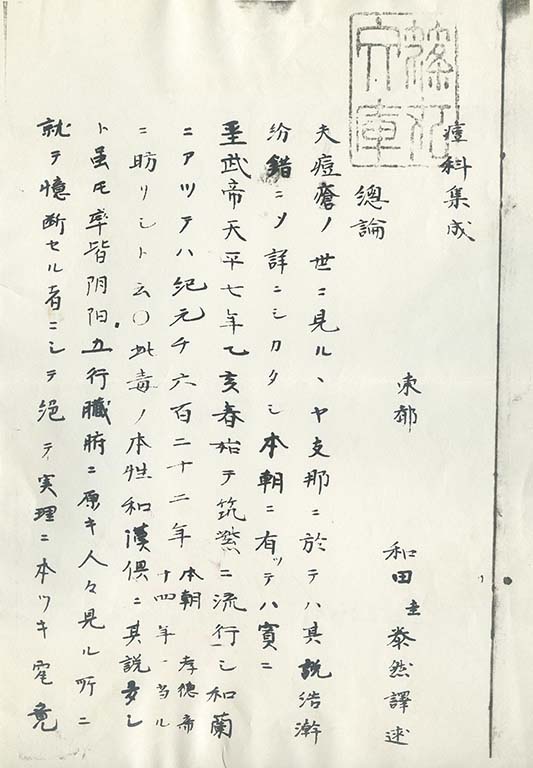 痘科集成
東都 和田 主 泰然譯述
總論
夫痘瘡ノ世ニ見ルヽヤ支那ニ於テハ其說浩瀚
紛錯ニメ詳ニシカタシ本朝ニ有ッテハ實ニ
聖武帝天平七年乙亥春始テ筑紫ニ流行シ和蘭
ニアツテハ紀元千六百二十二年 本朝 孝德帝
十四年ニ当ル
ニ昉リシト云〇此毒ノ本性和漢俱ニ其說多シ
ト虽モ率皆阴阳五行臟腑ニ原キ人々見ル所ニ
就テ憶断セル者ニシテ絕テ実理ニ本ツキ